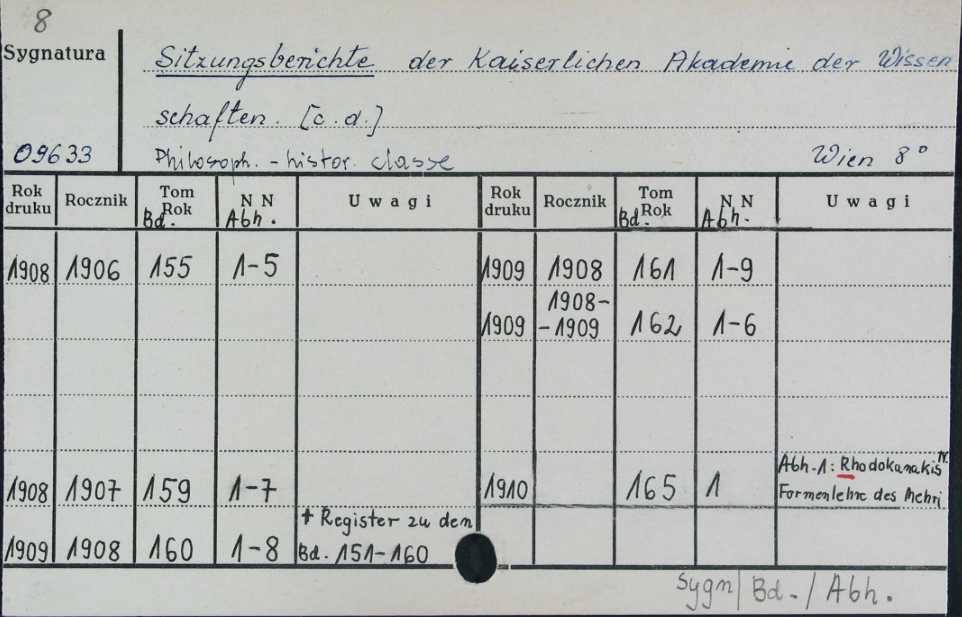 8
Sygnatura
Sitzungsberichte der Kaiserlichen Akademie der Wissen
schaften. [c.d.]
09633 Philosoph. - histor. classe Wien 8°
Rok druku Rocznik Tom Rok Bd. N N Abh. Uwagi Rok druku Rocznik Tom Rok Bd. N N Abh. Uwagi
1908 1906 155 1-5 1909 1908 161 1-9
1909 1908--1909 162 1-6
1908 1907 159 1-7 1910 165 1 Abh.1: Rhodokanakis N.
Formenlehre des Mehri
+ Register zu den
1909 1908 160 1-8 Bd. 151-160
Sygn/Bd./Abh.